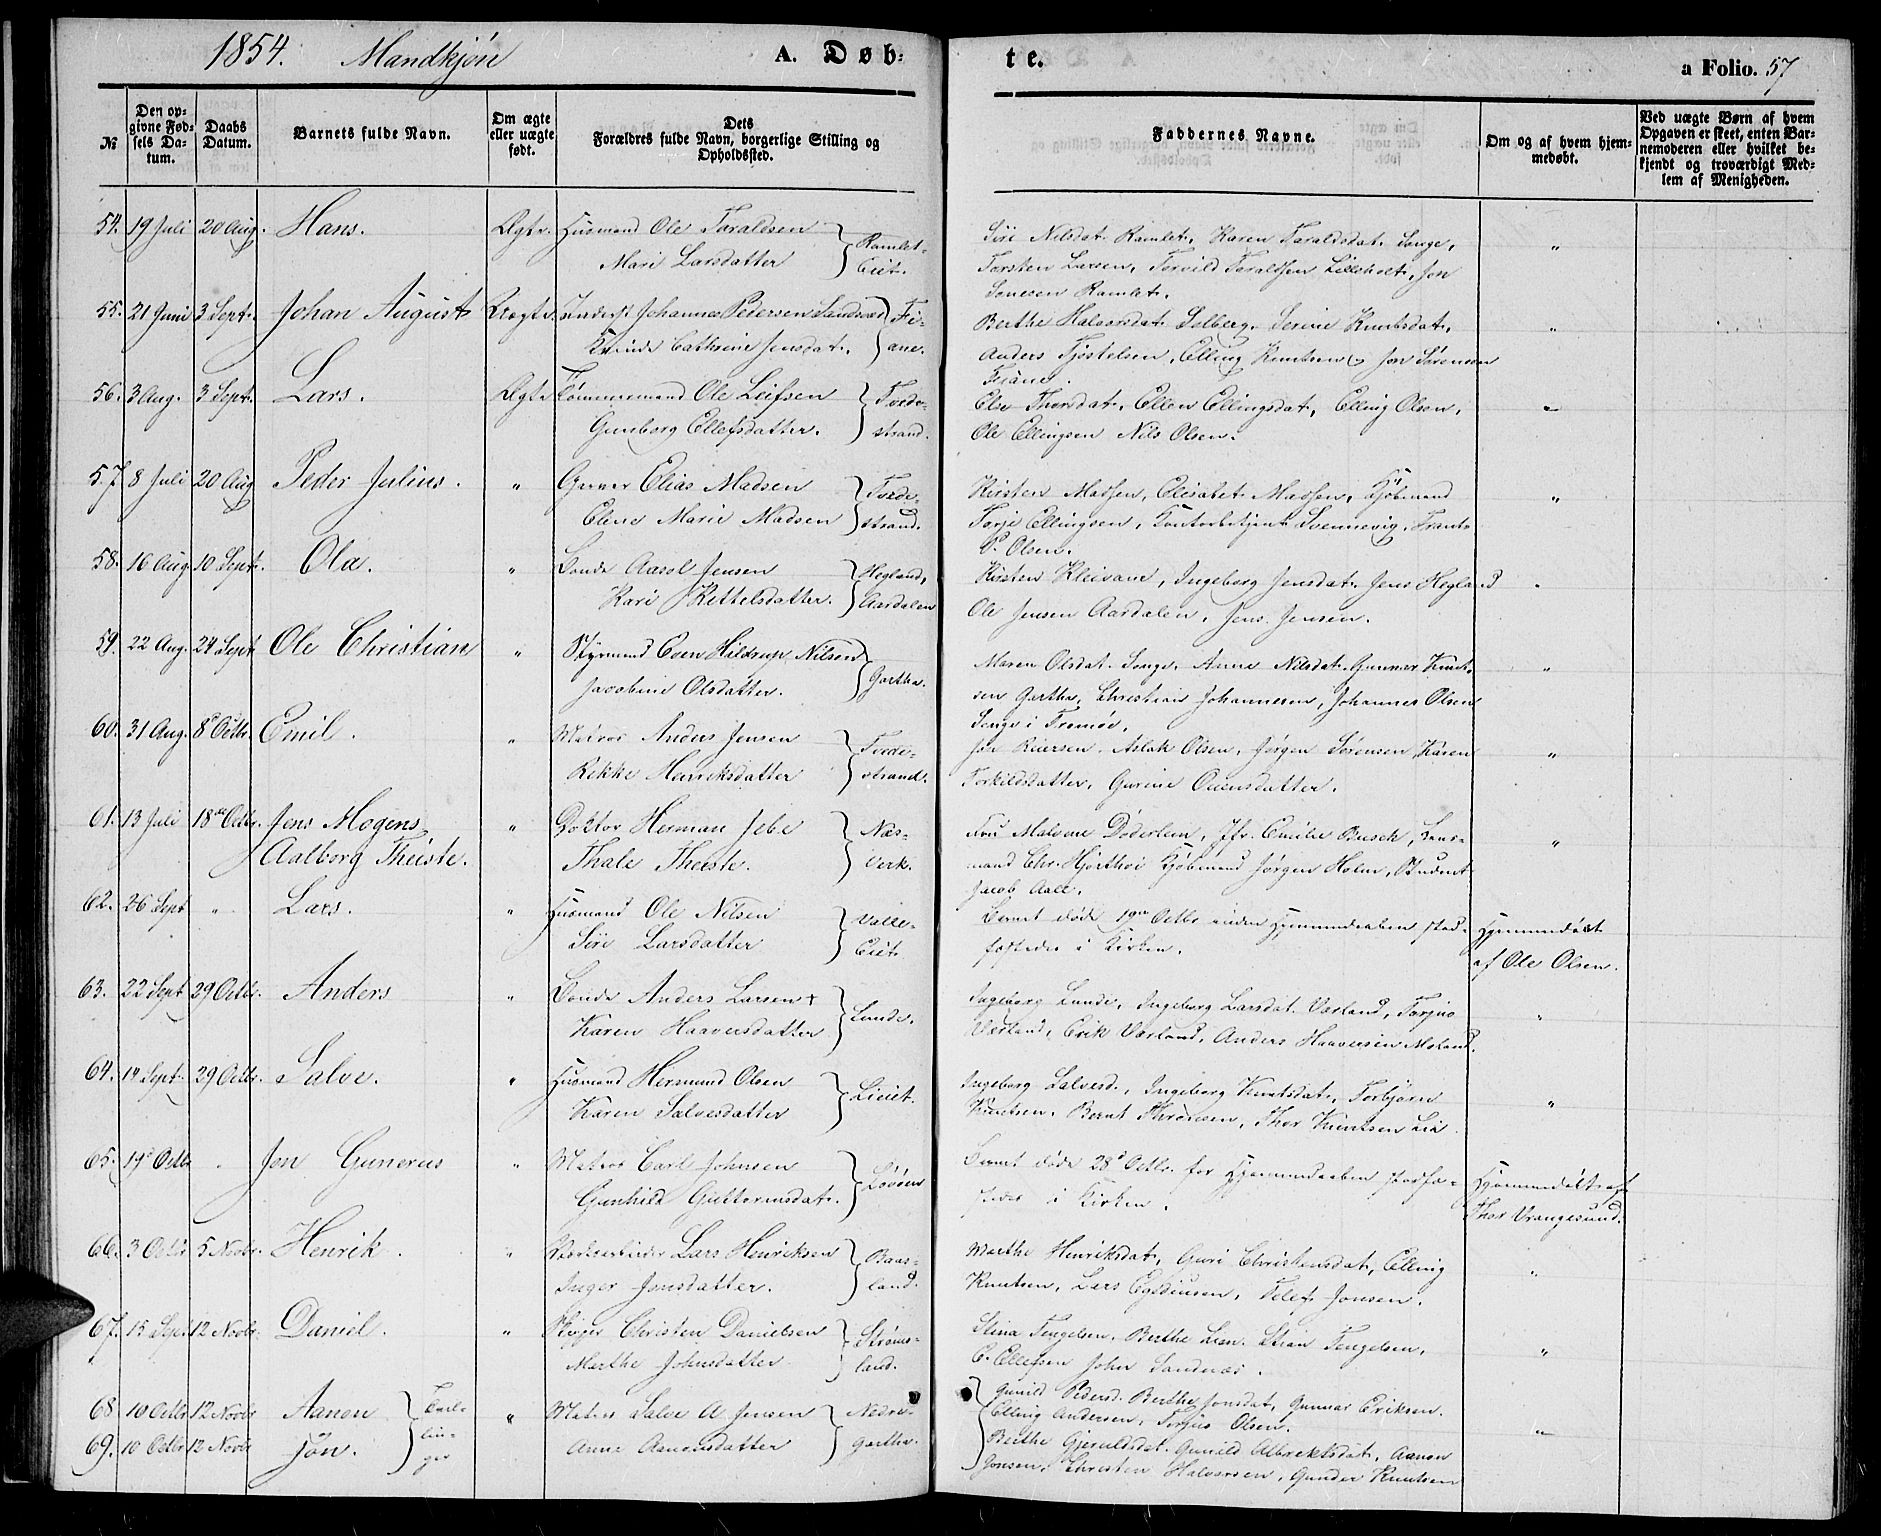 1854. Mandkjön A. Døb- te. a Folio. 57
№ Den opgivne Fødsels Datum. Daabs Datum. Barnets fulde Navn. Om ægte eller uægte født. Dets Forældres fulde Navn, borgerlige Stilling og Opholdssted. Faddernes Navne. Om og af hvem hjemmedøbt. Ved uægte Børn af hvem Opgaven er skeet, enten Barnemoderen eller hvilket bekjendt og troværdigt Medlem af Menigheden.
54. 19 Juli 20 Aug. Hans. Ægte. Husmand Ole Taraldsen Ramlet-
Mari Larsdatter Eiet.
Siri Nilsdat. Ramlet, Karen Taraldsdat. Songe,
Torsten Larsen, Torvild Taraldsen Lilleholt, Jon
Ramlet.
55. 21 Juni 3 Sept. Johan August Uægte. Inderst Johannes Pedersen Fi-
Cathrine Jensdat. ane.
Berthe Halvorsdat. Solberg. Serine Knutsdat.
Anders Tjöstelsen, Elling Knutsen, Jon Sörensen
Fiane.
56. 3 Aug. 3 Sept. Lars. Ægte Tömmermand Ole Leifsen Tvede-
Gunborg Ellefsdatter. strand.
Else Thorsdat. Ellen Ellingsdat, Elling Olsen,
Ole Ellingsen Nils Olsen.
57. 8 Juli 20 Aug Peder Julius. " Garver Elias Madsen Tvede-
Elene Marie Madsen strand.
Kirsten Madsen, Elisabet Madsen, Kjöbmand
Terje Ellingsen, Kontorbetjent Svennevig, Frants
P. Olsen.
58. 16 Aug 10 Sept. Ola. " Bonde Aasol Jensen Hegland,
Kari Kettelsdatter. Aardalen
Kirsten Kleivane, Ingeborg Jensdat. Jens Hegland
Ole Jensen Aardalen, Jens Jensen.
59. 22 Aug. 24 Sept Ole Christian " Styrmand Even Hildrup Nilsen
Jacobine Olsdatter. Gartha.
Maren Olsdat. Songe, Anne Nilsdat. Gunnar Knut-
sen Gartha, Christian Johannesen, Johannes Olsen
Songe i Tromöe.
60. 31 Aug. 8 Octbr. Emil. " Matros Anders Jensen Tvede-
Rikke Henriksdatter strand.
Reiersen. Aslak Olsen, Jörgen Sörensen, Karen
Torkildsdatter, Gurine
61. 13 Juli 18 Octbr. Jens Mogens " Doktor Herman Jebe Næs-
Aalborg Theiste. Thale Theiste. Verk.
Fru Malvene Döderlein, Jfr. Emilie Busch, Lens-
mand Chr. Hjorthöi Kjöbmand Jörgen Holm, Student
Jacob Aall.
62. 26 Sept " Lars. " Husmand Ole Nilsen Valle-
Siri Larsdatter Eiet
Barnet döde 19 Octbr inden Hjemmedaaben stad- Hjemmedöbt
fæstedes i Kirken. af Ole Olsen.
63. 22 Sept 29 Octbr. Anders " Bonde Anders Larsen +
Karen Haaversdatter Lunde.
Ingeborg Lunde, Ingeborg Larsdat. Varland, Torjus
Varland, Erik Varland, Anders Haaversen Moland.
64. 14 Sept. 29 Octbr. Salve. " Husmand Hermund Olsen
Karen Salvesdatter Lieiet.
Ingeborg Salvesd., Ingeborg Knutsdat. Torbjörn
Knutsen. Bernt Thronsen, Thor Knutsen Lia.
65. 19 Octbr Jon Gunerus " Matros Carl Johnsen Lövöen
Gunhild Guttormsdat.
Barnet döde 28 Octbr. för Hjemmedaaben stadfæ- Hjemmedöbt af
stedes i Kirken. Thor Vrangesund.
66. 3 Octbr 5 Novbr. Henrik. " Verksarbeider Lars Henriksen Baas-
Inger Jonsdatter. land.
Marthe Henriksdat, Guri Christensdat, Elling
Knutsen, Lars Egedinsen, Tellef Jonsen.
67. 15 Sept 12 Novbr. Daniel. " Skipper Christen Danielsen Ströms-
Marthe Johnsdatter land.
Stina Tengelsen. Berthe Lien. Stian Tengelsen,
C. Ellefsen John Sandnæs.
68 10 Octbr 12 Novbr Aanon Tvil- " Matros Salve A Jensen Nedre-
69. 10 Octbr 12 Novbr Jon. lin- Anne Aanonsdatter Gartha.
ger
Gunild Pedersd. Berthe Jonsdat, Gunnar Eriksen.
Elling Andersen, Torjus Olsen.
Berthe Gjeruldsdat. Gunild Albrektsdat, Aanon
Jonsen, Christen Halvorsen, Gunder Knutsen